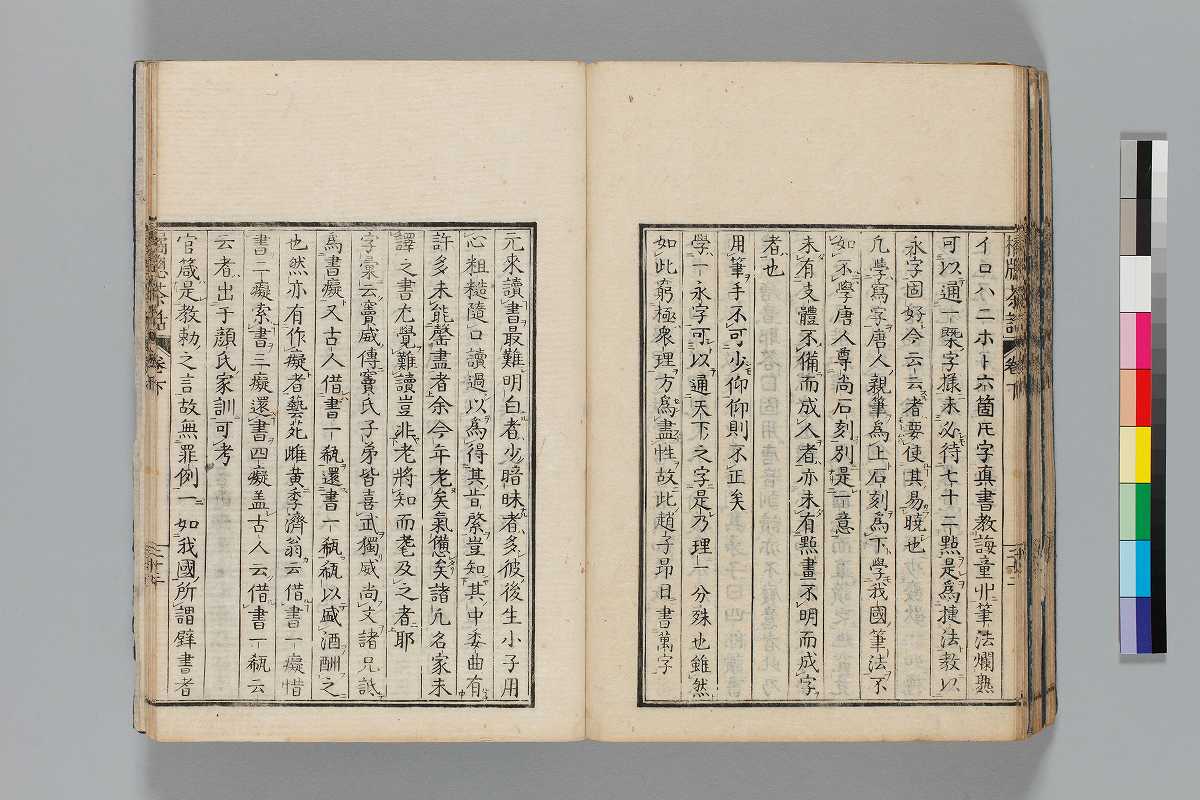 イロハニホト六箇氏字真書教誨童丱筆法爛熟
可以通一槩字様未必待七十二點是為捷法教以
永字固好今云云者要使其易曉也
凡學寫字唐人親筆為上石刻為下學我國筆法不
如不學唐人尊尚石刻別是一意
未有支體不備而成人者亦未有點畫不明而成字
者也
用筆手不可少仰仰則不正矣
學一永字可以通天下之字是乃理一分殊也雖然
如此窮極衆理方為盡性故此趙子昂日書萬字
元來讀書最難明白者少暗昧者多彼後生小子用
心粗糙隨口讀過以為得其旨綮豈知其中委曲有
許多未能罄盡者余今年老矣氣憊矣諸凡名家未
譯之書尤覺難讀豈非老將知而耄及之者耶
字彙云竇威傳竇氏子弟皆喜武獨威尚文諸兄詆
為書癡又古人借書一瓻還書一瓻瓻以盛酒酬之
也然亦有作癡者藝苑雌黄李濟翁云借書一癡惜
書二癡索書三癡還書四癡盖古人云借書一瓻云
云者出于顔氏家訓可考
官箴是教勅之言故無罪例一如我國所謂壁書者
卷下